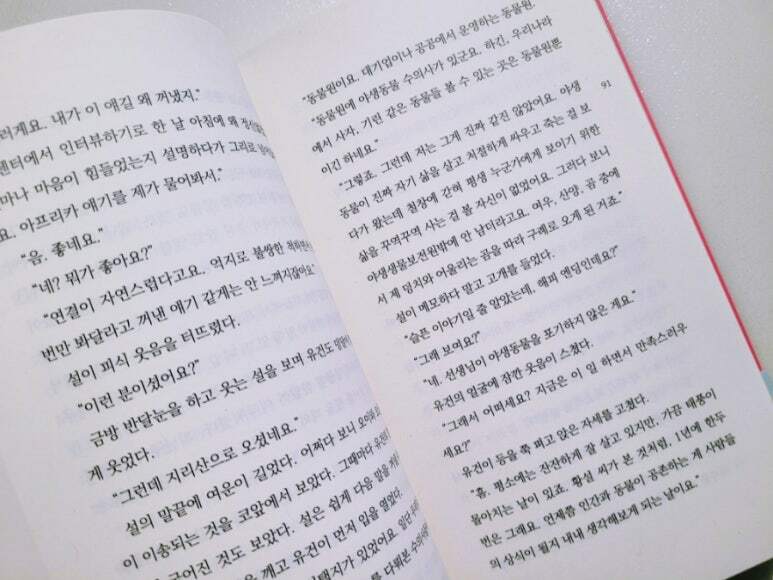 러게요. 내가 이 얘길 왜 꺼냈지."
센터에서 인터뷰하기로 한 날 아침에 왜
마나 마음이 힘들었는지 설명하다가 그리로
요. 아프리카 얘기를 제가 물어봐서."
"음. 좋네요."
"네? 뭐가 좋아요?"
"연결이 자연스럽다고요. 억지로 불쌍한 척하면서
번만 봐달라고 꺼낸 얘기 같게는 안 느껴지잖아요."
설이 피식 웃음을 터뜨렸다.
"이런 분이셨어요?"
금방 반달눈을 하고 웃는 설을 보며 유건도
게 웃었다.
"그런데 지리산으로 오셨네요."
설의 말끝에 여운이 길었다. 어쩌다 보니
이 이송되는 것을 코앞에서 보았다. 그때마다
굳어진 것도 보았다. 설은 쉽게 다음 말을
을 깨고 유건이 먼저 입을 열었다.
태지가 있었어요. 일단
를 다뤄본 수의사
"동물원이요. 대기업이나 공공에서 운영하는 동물원."
"동물원에 야생동물 수의사가 있군요. 하긴, 우리나라
에서 사자, 기린 같은 동물들 볼 수 있는 곳은 동물원뿐
이긴 하네요."
"그렇죠. 그런데 저는 그게 진짜 같진 않았어요. 야생
동물이 진짜 자기 삶을 살고 처절하게 싸우고 죽는 걸 보
다가 왔는데 철창에 갇혀 평생 누군가에게 보이기 위한
삶을 꾸역꾸역 사는 걸 볼 자신이 없었어요. 그러다 보니
야생생물보전원밖에 안 남더라고요. 여우, 산양, 곰 중에
서 제 덩치와 어울리는 곰을 따라 구례로 오게 된 거죠."
설이 메모하다 말고 고개를 들었다.
"슬픈 이야기일 줄 알았는데, 해피 엔딩인데요?"
"그래 보여요?"
"네. 선생님이 야생동물을 포기하지 않은 게요."
유건의 얼굴에 잠깐 웃음이 스쳤다.
"그래서 어떠세요? 지금은 이 일 하면서 만족스러우
세요?"
유건이 등을 쭉 펴고 앉은 자세를 고쳤다.
"흠. 평소에는 잔잔하게 잘 살고 있지만, 가끔 태풍이
몰아치는 날이 있죠. 황설 씨가 본 것처럼. 1년에 한두
번은 그래요. 언제쯤 인간과 동물이 공존하는 게 사람들
의 상식이 될지 내내 생각해보게 되는 날이요."
91